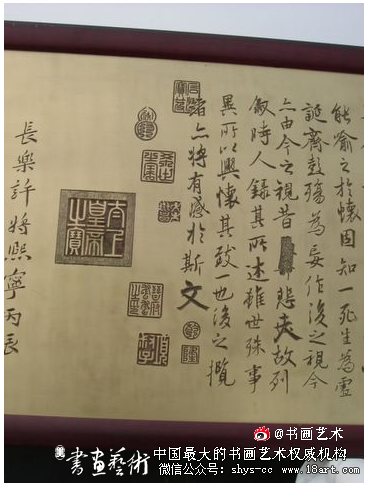 能喻之於懷固知一死生為虛
誕齊彭殤為妄作後之視今
亦由今之視昔悲夫故列
敘時人錄其所述雖世殊事
異所以興懷其致一也後之攬
者亦將有感於斯文
太上皇帝之寶
長樂許將熙寧丙辰
@书画艺术
書画藝術
中国最大的书画艺术权威机构
微信公众号：shys-cc www.18art.com